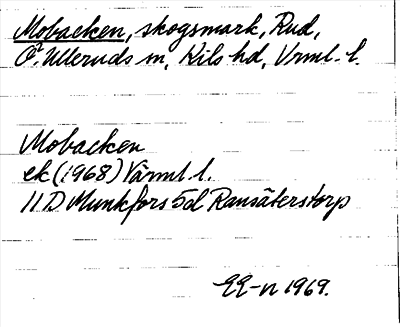 Mobacken, skogsmark, Rud,
Ö. Ulleruds sn, Kils hd, Vrml. l.
Mobacken
ek (1968) Värml l.
11 D Munkfors 5d Ransäterstorp
EE-n 1969.